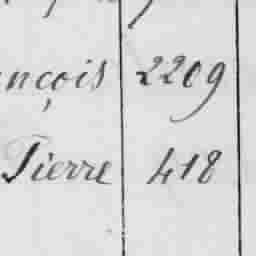 nçois 2209
Pierre 418